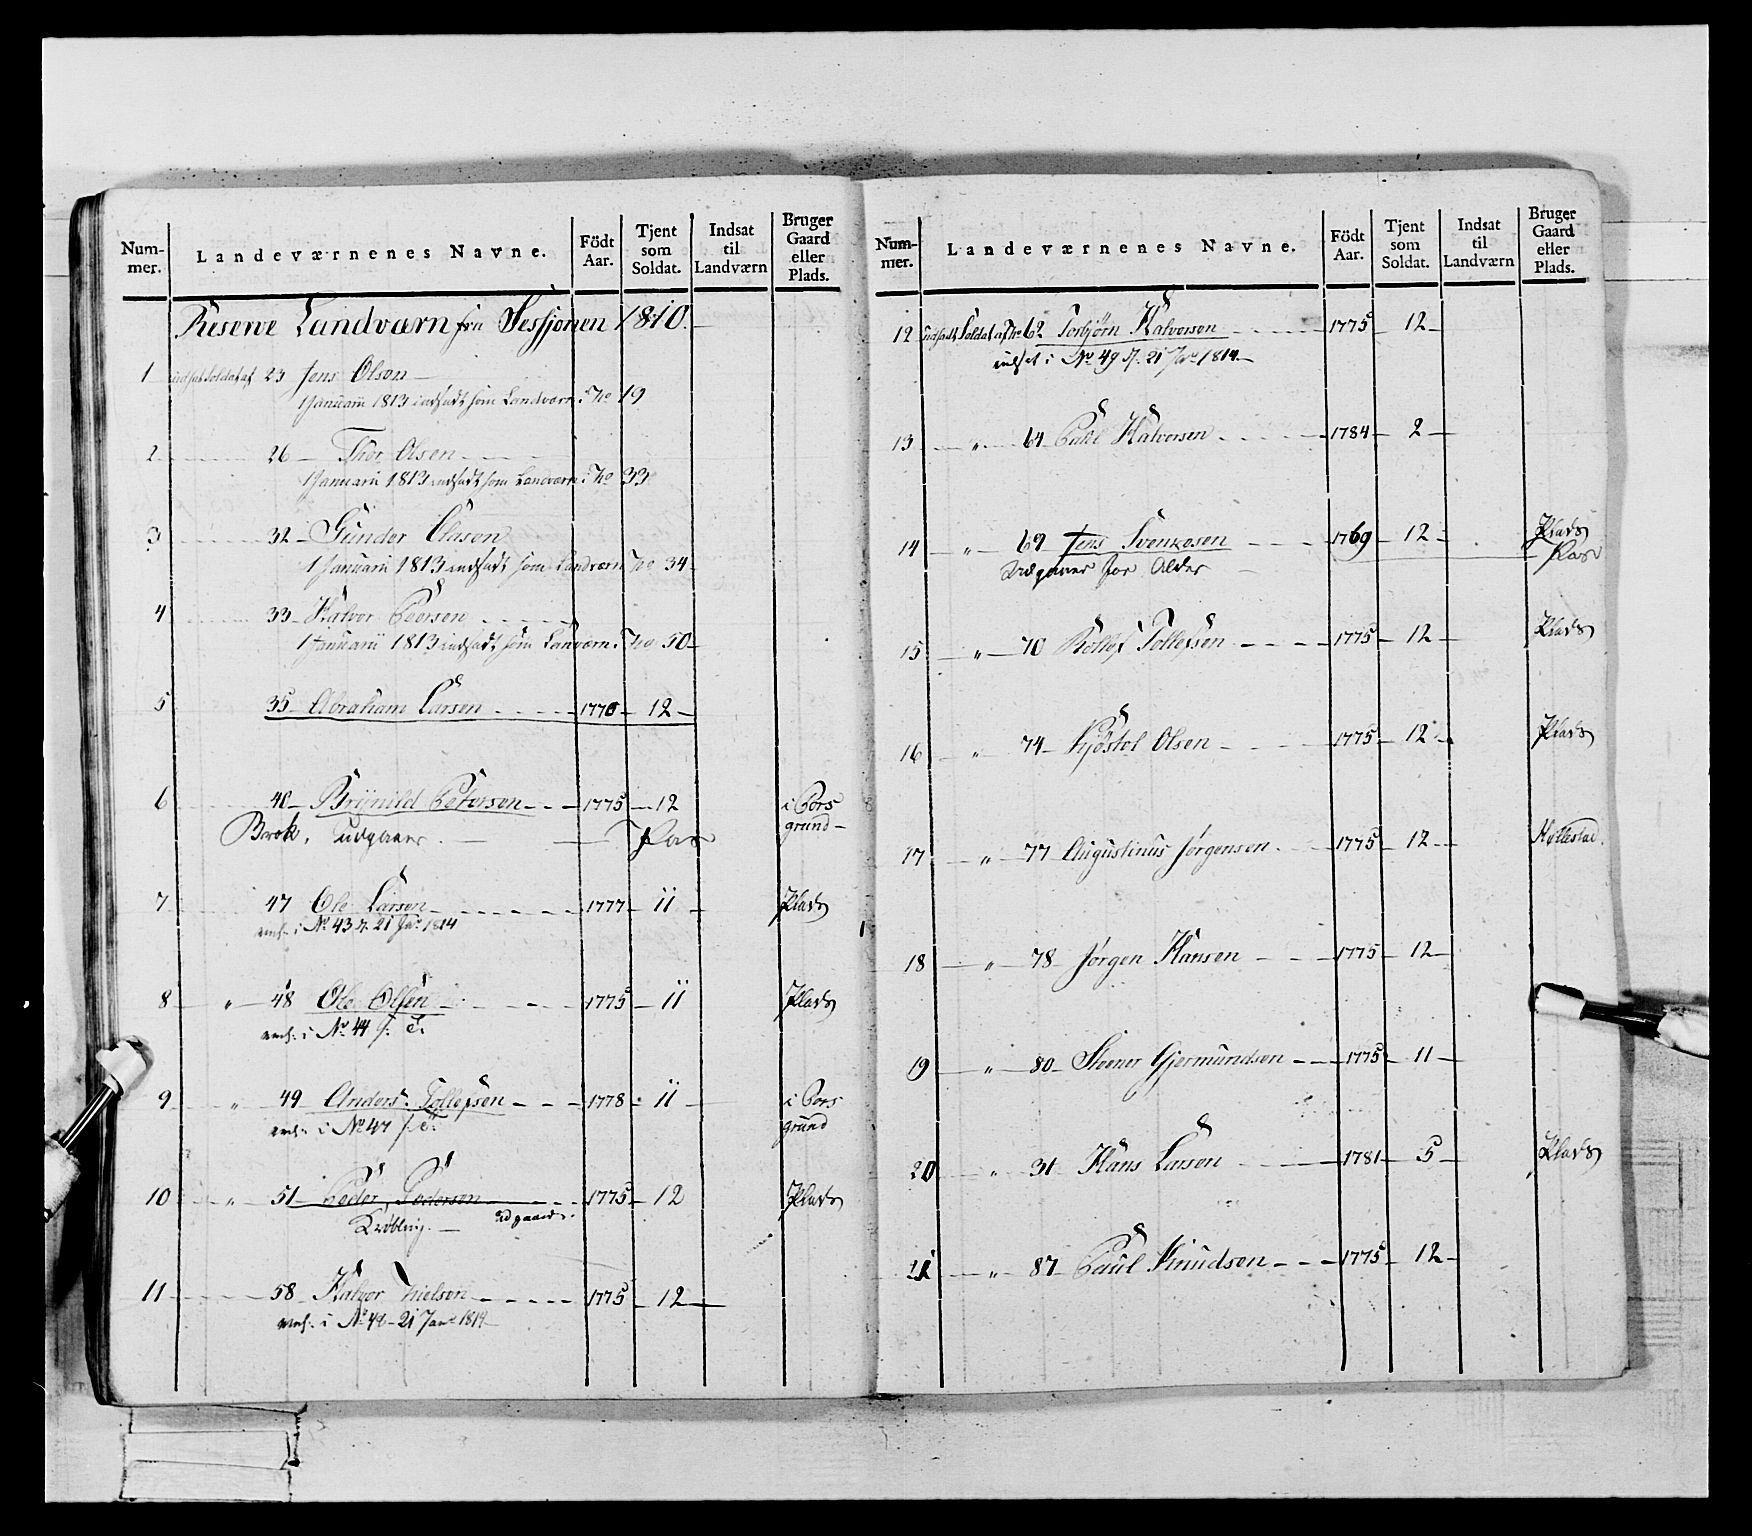 Num-
mer.
Landeværnenes Navne.
Födt
Aar.
Tjent
som
Soldat.
Indsat
til
Landværn
Bruger
Gaard
eller
Plads.
Reserve Landværn fra Sessjonen 1810
1 indsat Soldat af 23 Jens Olsen
1 Januarii 1813 indsadt som Landværn No 19
2 26 Thor Olsen
1 Januarii 1813 indsadt som Landværn No 33
3 32 Gunder Olasen
1 Januarii 1813 indsadt som Landværn No 34
4 33 Halvor Peersen
1 Januarii 1813 indsadt som Lanværn No 50
5 35 Abraham Larsen 1770 12
6 40 Brynild Petersen 1775 12 i Pors
Brok, udgaaer grund
7 47 Ole Larsen 1777 11 Plads
i No 43 d. 21 Jan 1814
8 " 48 Ole Olsen 1775 11 Plads
i No 44
9 " 49 Anders Tollefsen 1778 11 i Pors
i No 47 grund
10 " 51 Peder Pedersen 1775 12 Plads
Krøbling. udgaaer
11 58 Halvor Nielsen 1775 12
i No 48 21 Jan 1814
Num-
mer.
Landeværnenes Navne.
Födt
Aar.
Tjent
som
Soldat.
Indsat
til
Landværn
Bruger
Gaard
eller
Plads.
12 indsadt Soldat af No 62 Torbjörn Halvorsen 1775 12
indsat i No 49 d. 21 Jan 1814
13 " 64 Halvorsen 1784 2
14 " 69 Jens Svenkesen 1769 12 Plads
Udgaaer for Alder
15 " 70 Rollef Tollefsen 1775 12 Plads
16 " 74 Kjöstol Olsen 1775 12 Plads
17 " 77 Augustinus Jörgensen 1775 12
18 " 78 Jörgen Hansen 1775 12
19 " 80 Steener Gjermundsen 1775 11
20 " 31 Hans Larsen 1781 5 Plads
21 " 87 Paul Knudsen 1775 12